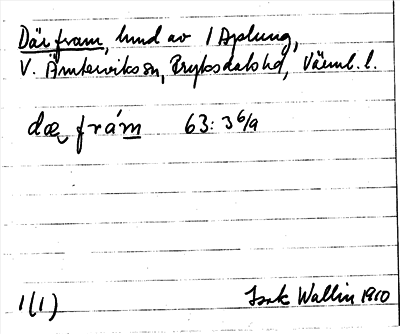 Där fram, hmd av 1 Aplung,
V. Ämterviks sn, Fryksdals hd, Värml. l.
dæ frám 63: 36/9
1(1) Isak Wallin 1910